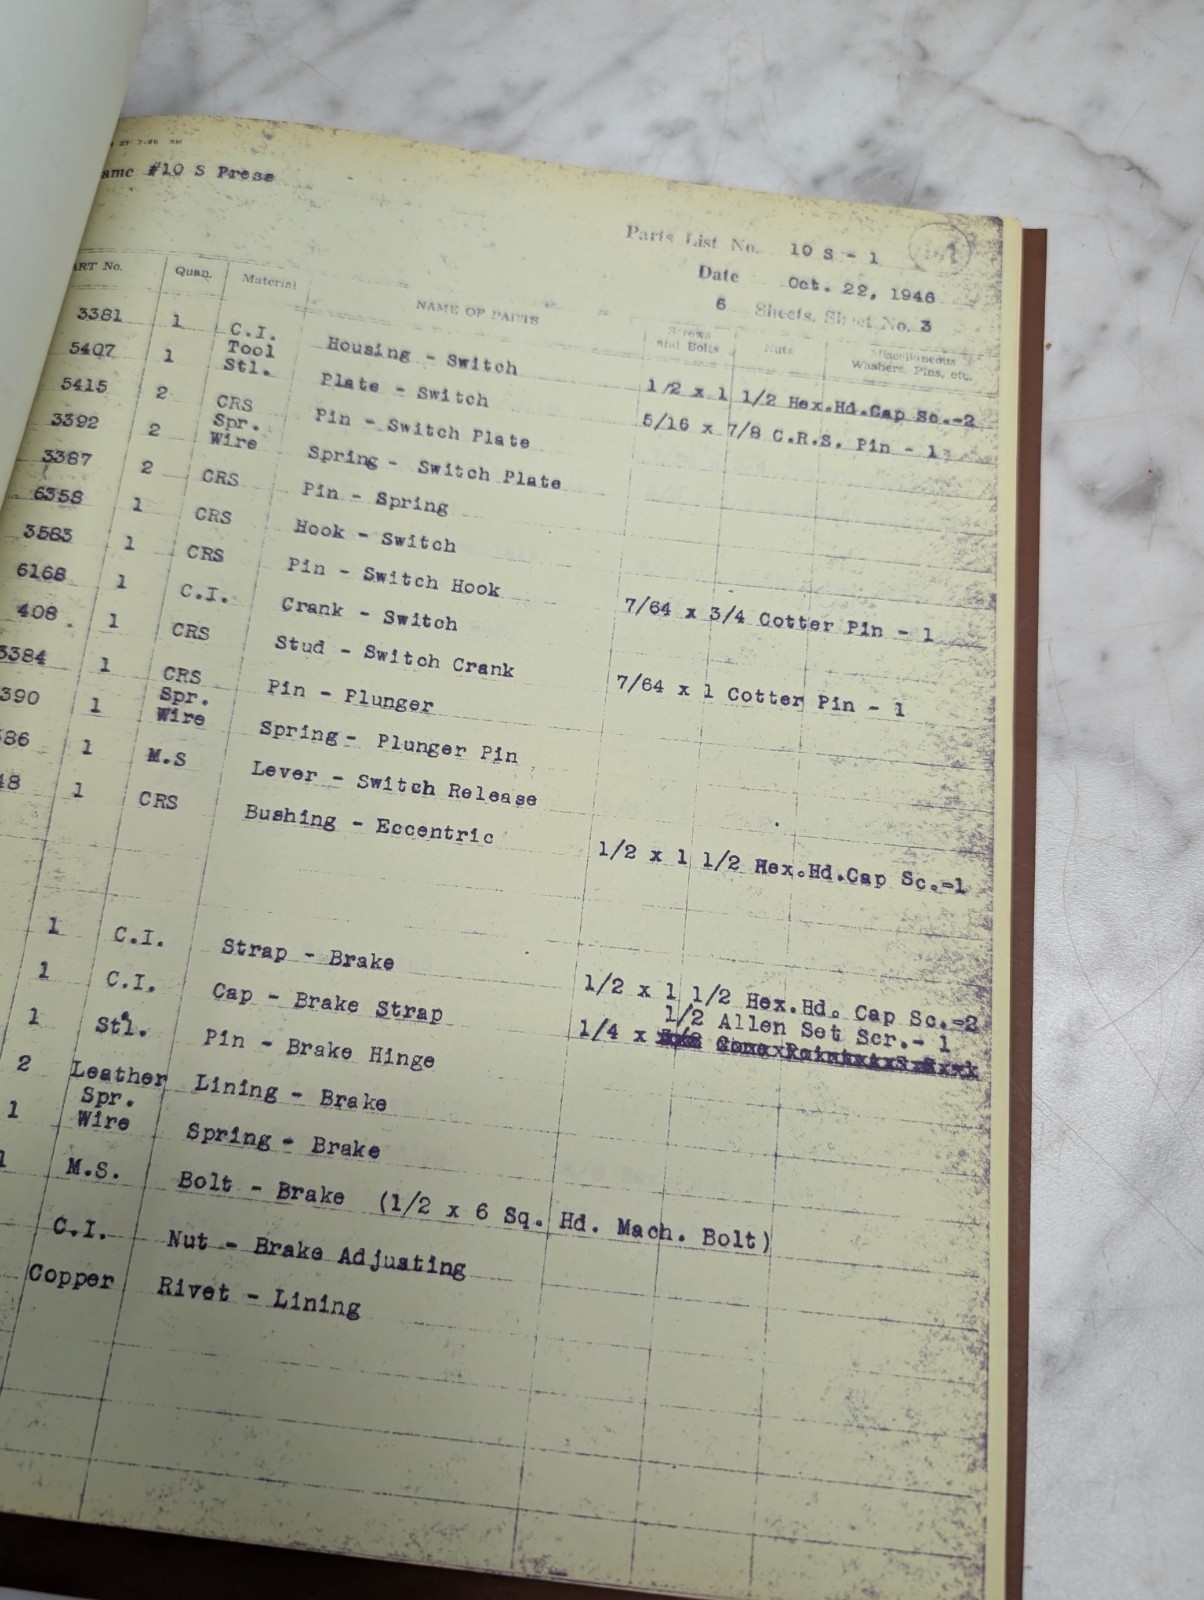 ame #10 S Press
Parts List No. 10 S - 1
Date Oct. 22, 1946
6 Sheets, Sheet No. 3
ART No. Quan. Material NAME OF PARTS Screws and Bolts Nuts Miscellaneous Washers, Pins, etc.
3381 1 C.I. Housing - Switch 1/2 x 1 1/2 Hex.Hd.Cap Sc.-2
5407 1 Tool Stl. Plate - Switch 5/16 x 7/8 C.R.S. Pin - 1
5415 2 CRS Pin - Switch Plate
3392 2 Spr. Wire Spring - Switch Plate
3387 2 CRS Pin - Spring
6358 1 CRS Hook - Switch
3583 1 CRS Pin - Switch Hook 7/64 x 3/4 Cotter Pin - 1
6168 1 C.I. Crank - Switch
408 1 CRS Stud - Switch Crank 7/64 x 1 Cotter Pin - 1
3384 1 CRS Pin - Plunger
390 1 Spr. Wire Spring - Plunger Pin
86 1 M.S Lever - Switch Release
48 1 CRS Bushing - Eccentric 1/2 x 1 1/2 Hex.Hd.Cap Sc.-1
1 C.I. Strap - Brake
1 C.I. Cap - Brake Strap 1/2 x 1 1/2 Hex.Hd. Cap Sc.-2
1 Stl. Pin - Brake Hinge 1/4 x 1/2 Allen Set Scr.- 1
2 Leather Lining - Brake
1 Spr. Wire Spring - Brake
1 M.S. Bolt - Brake (1/2 x 6 Sq. Hd. Mach. Bolt)
C.I. Nut - Brake Adjusting
Copper Rivet - Lining